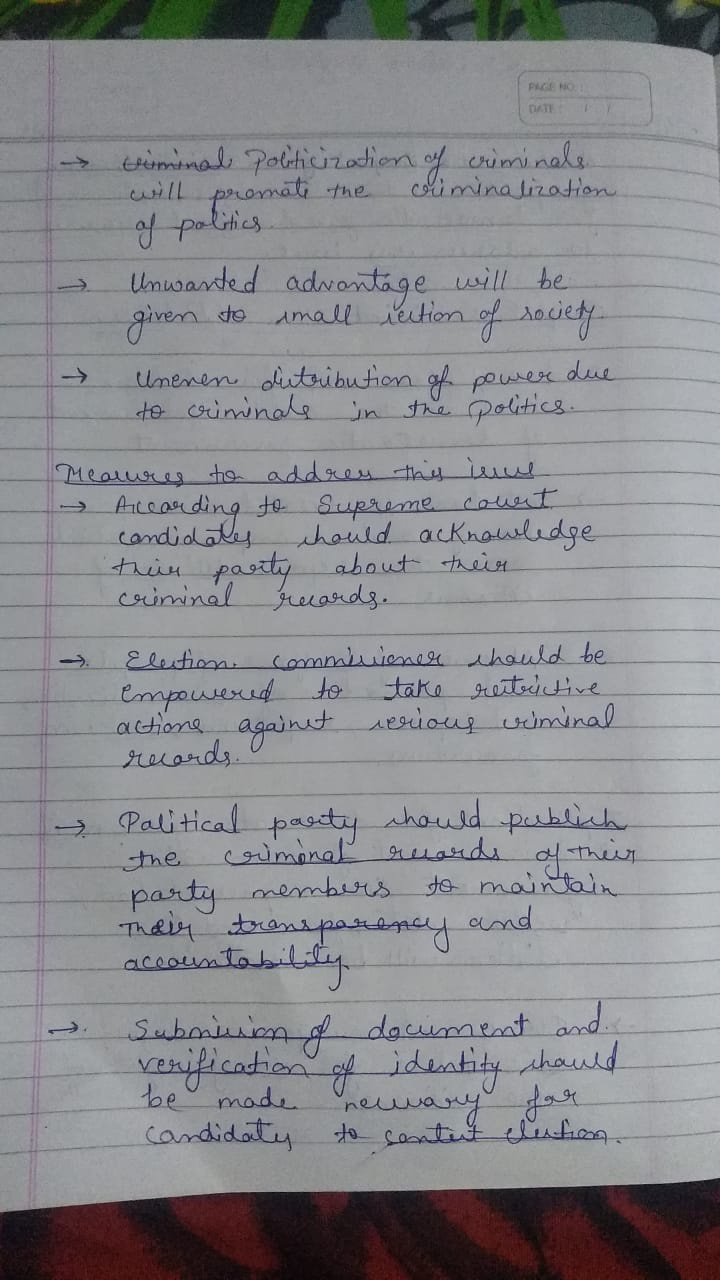 PAGE NO.:
DATE: / /
→ criminal Politicization of criminals
will promote the criminalization
of politics.
→ Unwanted advantage will be
given to small section of society.
→ Uneven distribution of power due
to criminals in the politics.
Measures to address this issue
→ According to Supreme court
candidates should acknowledge
their party about their
criminal records.
→. Election. commissioner should be
empowered to take restrictive
actions against serious criminal
records.
→ Political party should publish
the criminal records of their
party members to maintain
their transparency and
accountability.
→. Submission of document and.
verification of identity should
be made necessary for
candidates to contest election.